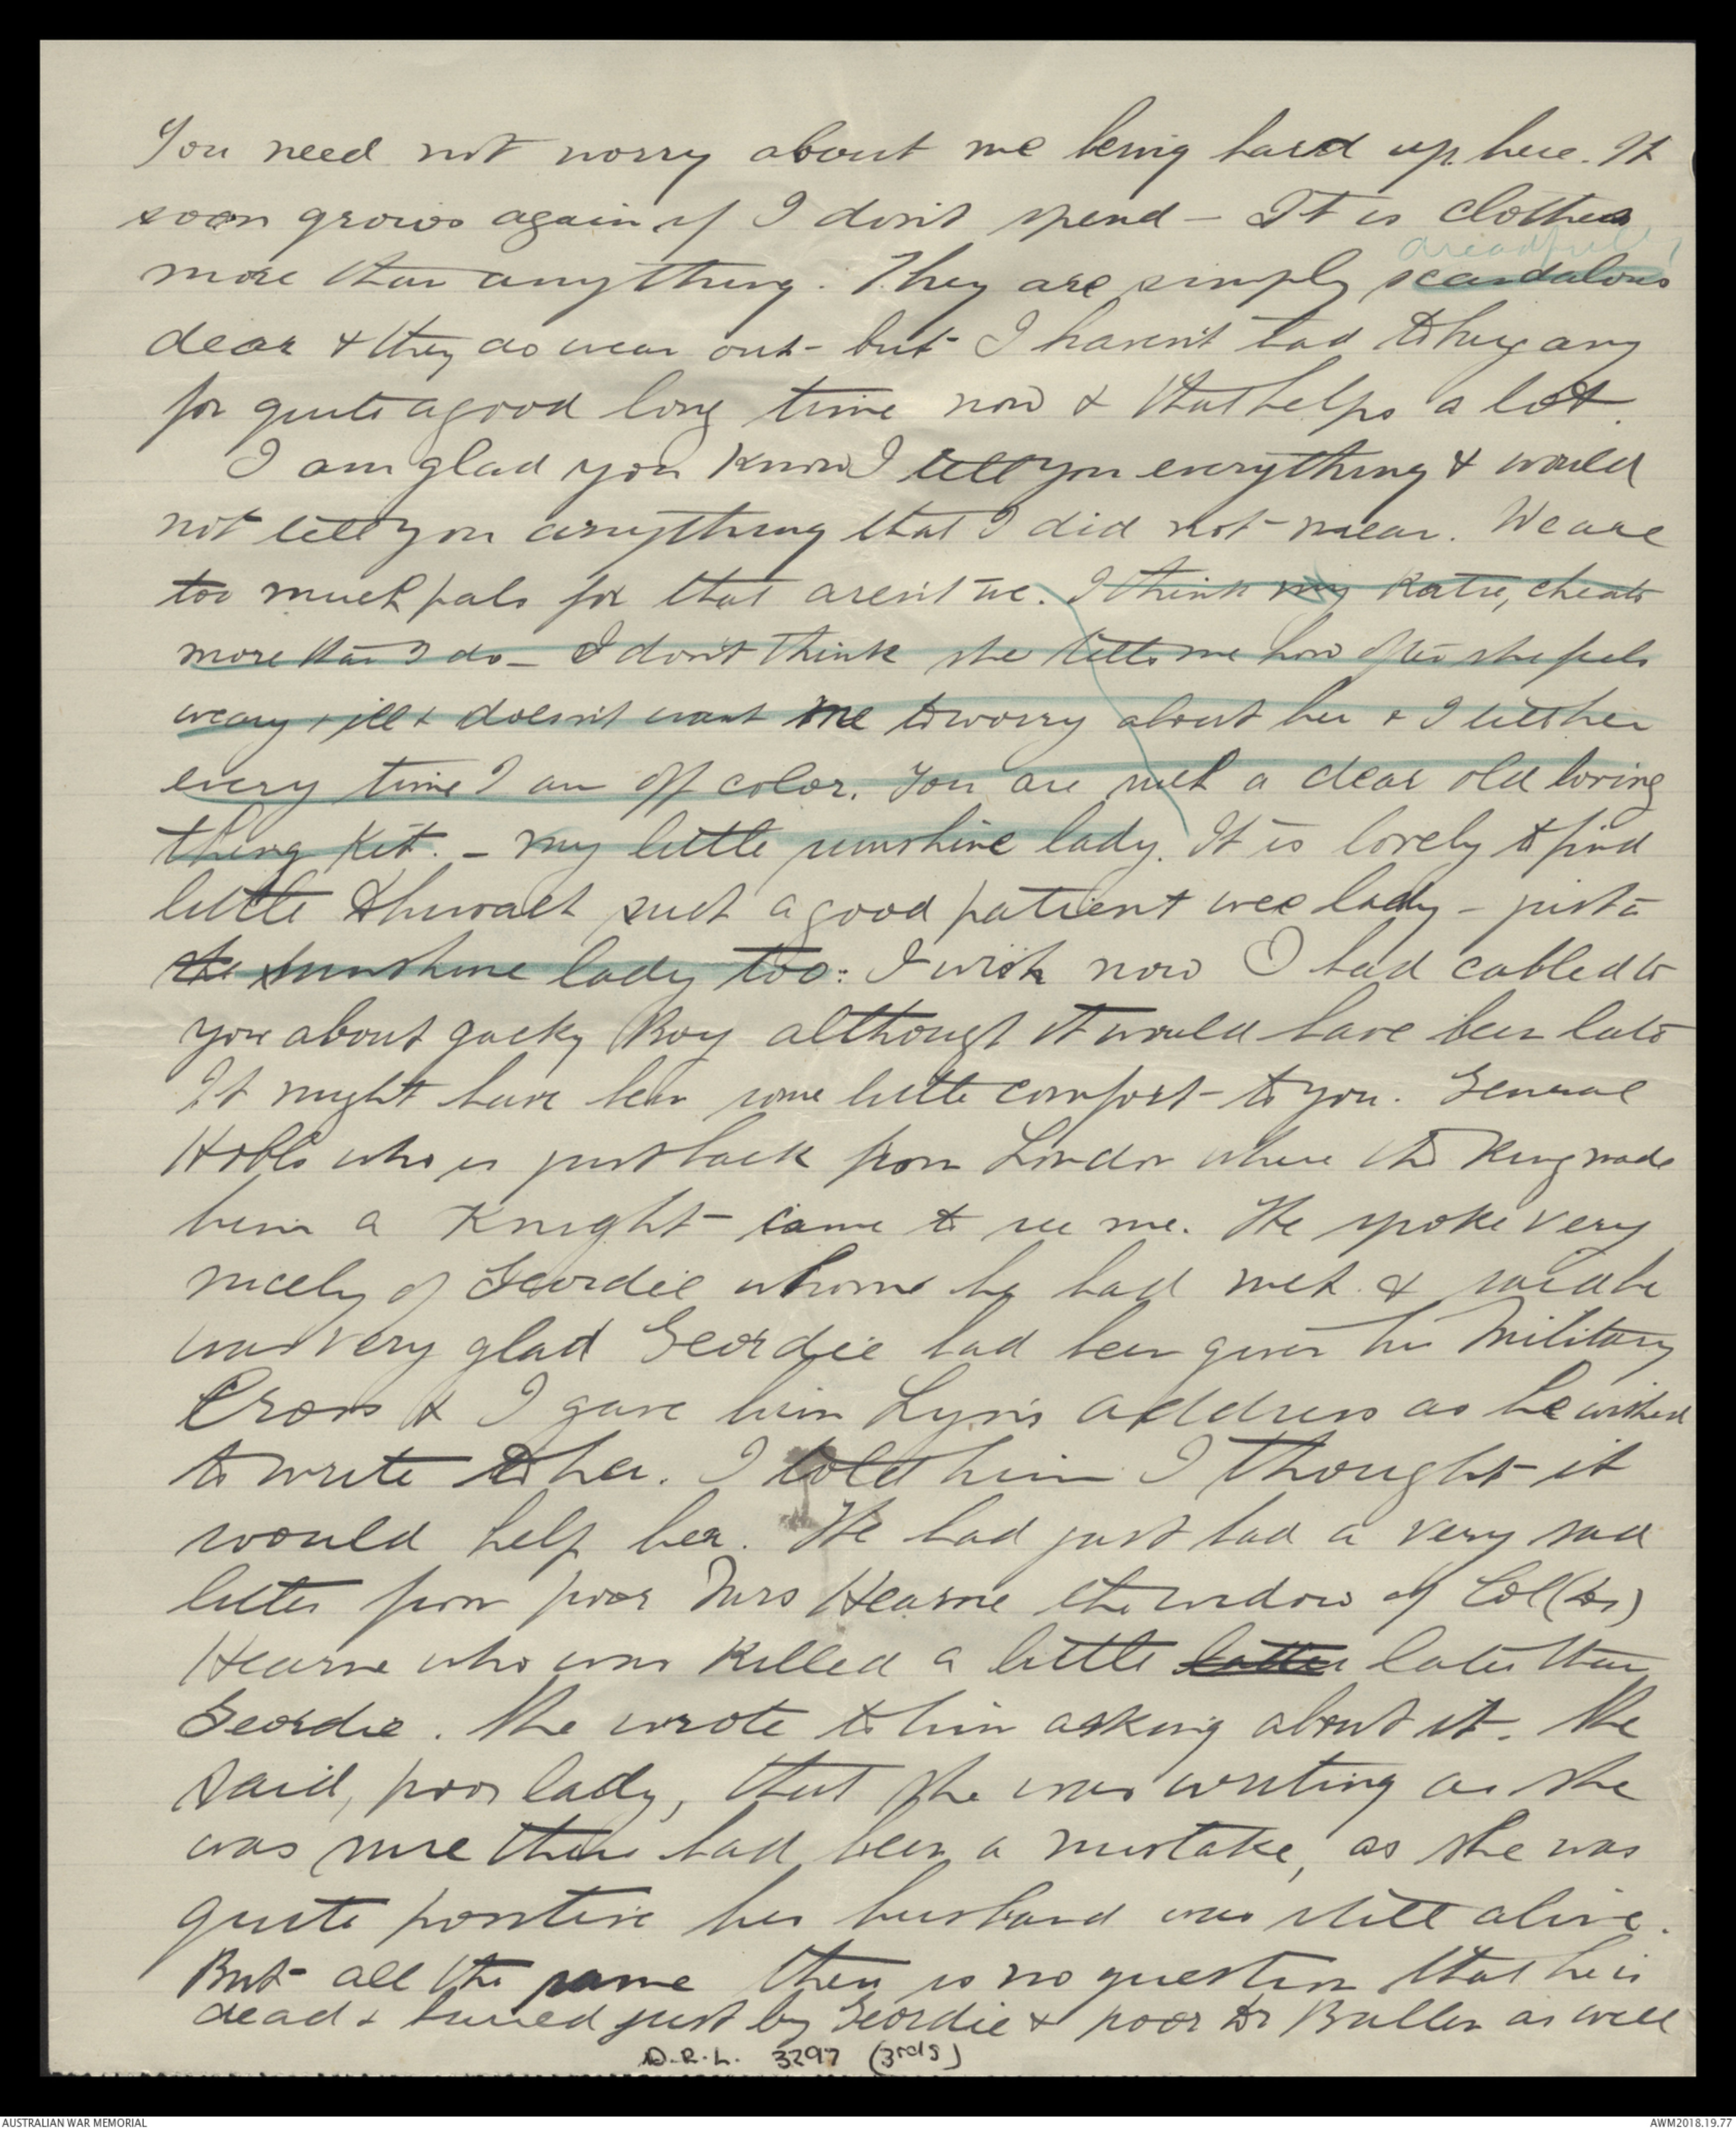 You need not worry about me being hard up here. It
soon grows again if I don't spend – It is clothes
dreadful
more than anything. They are simply scandalous
dear & they do wear out – but I haven't had to buy any
for quite a good long time now & that helps a lot.
I am glad you know I tell you everything & would
not tell you anything that I did not mean. We are
too much pals for that aren't we. I think my Katie, cheats
more than I do – I don't think she tells me how often she feels
weary & ill & doesn't want me to worry about her & I tell her
every time I am off color. You are such a dear old loving
thing Kit. – my little sunshine lady. It is lovely to find
little such a good patient wee lady – just a
sunshine lady too: I wish now I had cabled to
you about Jacky Roy although it would have been late
It might have been some little comfort to you. General
Hobbs who is just back from London where the King made
him a Knight – came to see me. He spoke very
nicely of Geordie whom he had met & said he
was very glad Geordie had been given his Military
Cross & I gave him Lyn's address as he wished
to write to her. I told him I thought it
would help her. He had just had a very sad
letter from poor Mrs Hearne the widow of Col (Dr)
Hearne who was killed a little later than
Geordie. She wrote to him asking about it. She
said, poor lady, that she was writing as she
was sure there had been a mistake, as she was
quite positive her husband was still alive.
But all the same there is no question that he is
dead & buried just by Geordie & poor Dr Buller as well
D.R.L. 3297 (3rd S)
AUSTRALIAN WAR MEMORIAL
AWM2018.19.77